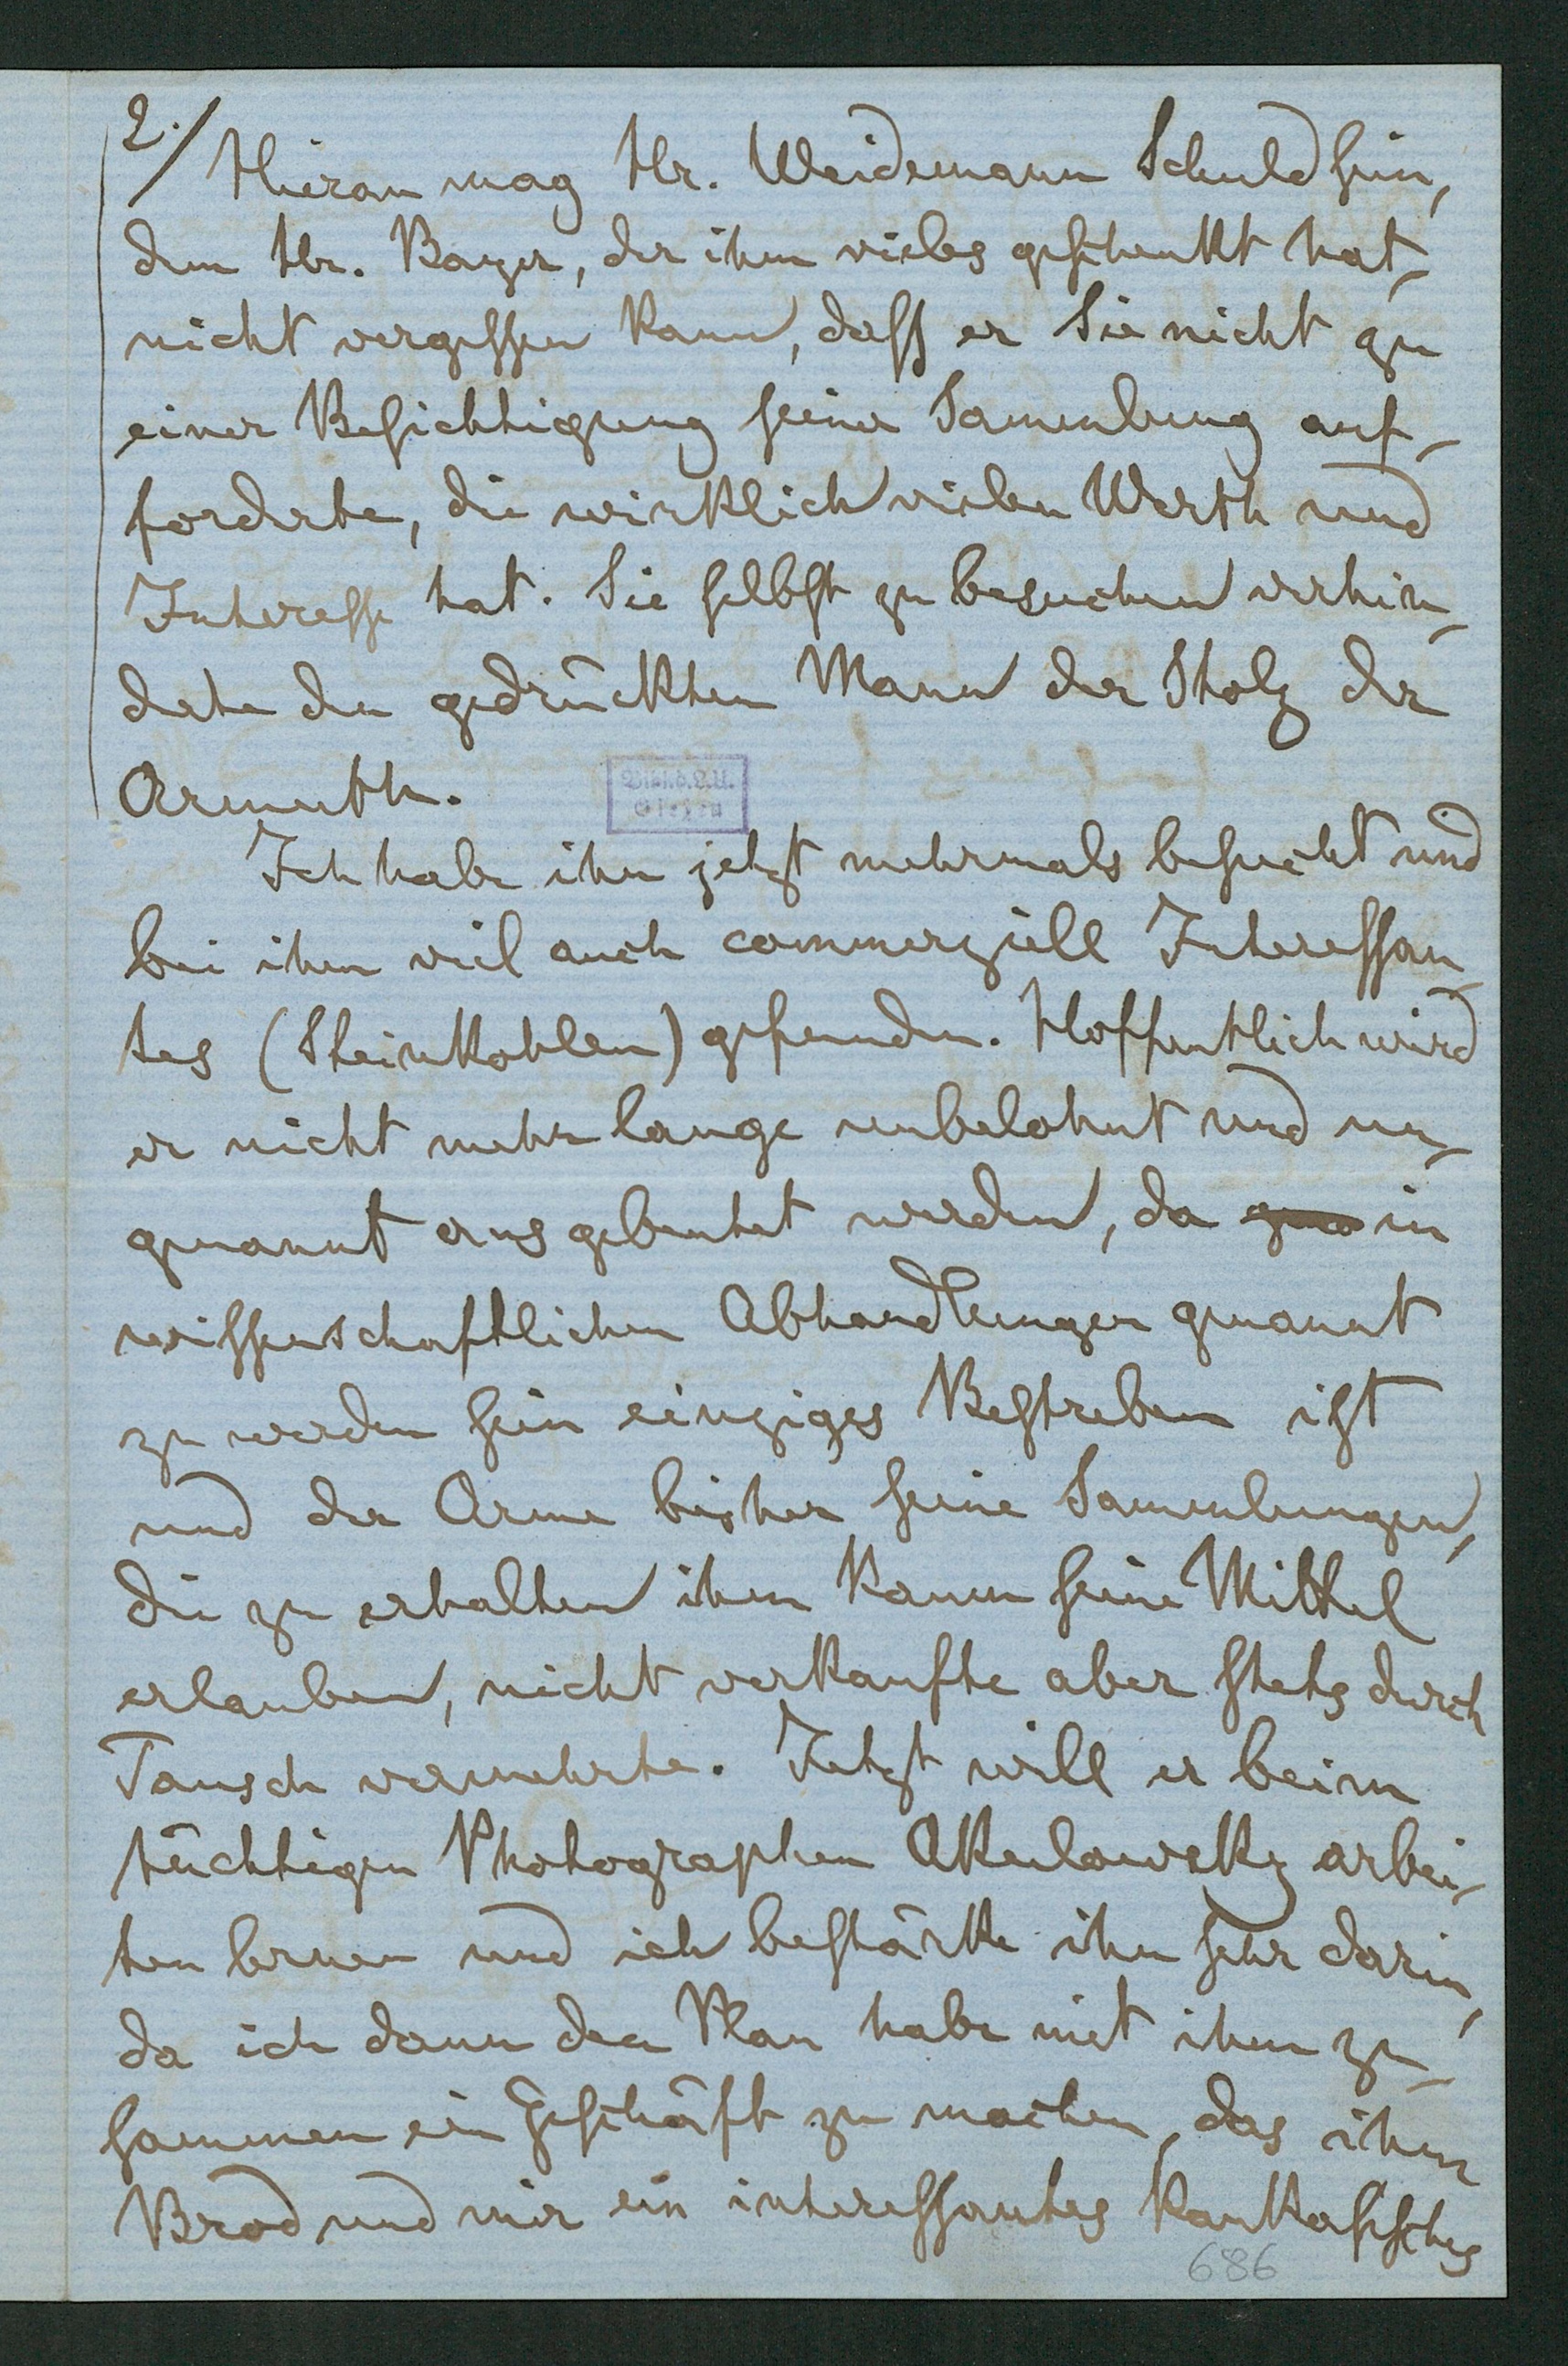 2./
Hieran mag Hr. Weidemann Schuld sein,
dem Hr. Bayer, der ihm vieles geschenkt hat,
nicht vergessen kann, dass er Sie nicht zu
einer Besichtigung seiner Sammlung auf-
forderte, die wirklich vielen Werth und
Interesse hat. Sie selbst zu besuchen verhin-
derte den gedrückten Mann der Stolz der
Armuth.
Bibl.d.L.U.
Gießen
Ich habe ihn jetzt mehrmals besucht und
bei ihm viel auch commerziell Interessan-
tes (Steinkohlen) gefunden. Hoffentlich wird
er nicht mehr lange unbelohnt und un-
genannt ausgebeutet werden, da in
wissenschaftlichen Abhandlungen genannt
zu werden sein einziges Bestreben ist
und der Arme bisher seine Sammlungen,
die zu erhalten ihm kaum seine Mittel
erlauben, nicht verkaufte aber stets durch
Tausch vermehrte. Jetzt will er beim
tüchtigen Photographen arbei-
ten lernen und ich bestärke ihn sehr darin,
da ich dann den Plan habe mit ihm zu-
sammen ein Geschäft zu machen, das ihm
Brod und mir ein interessantes kaukasisches
686